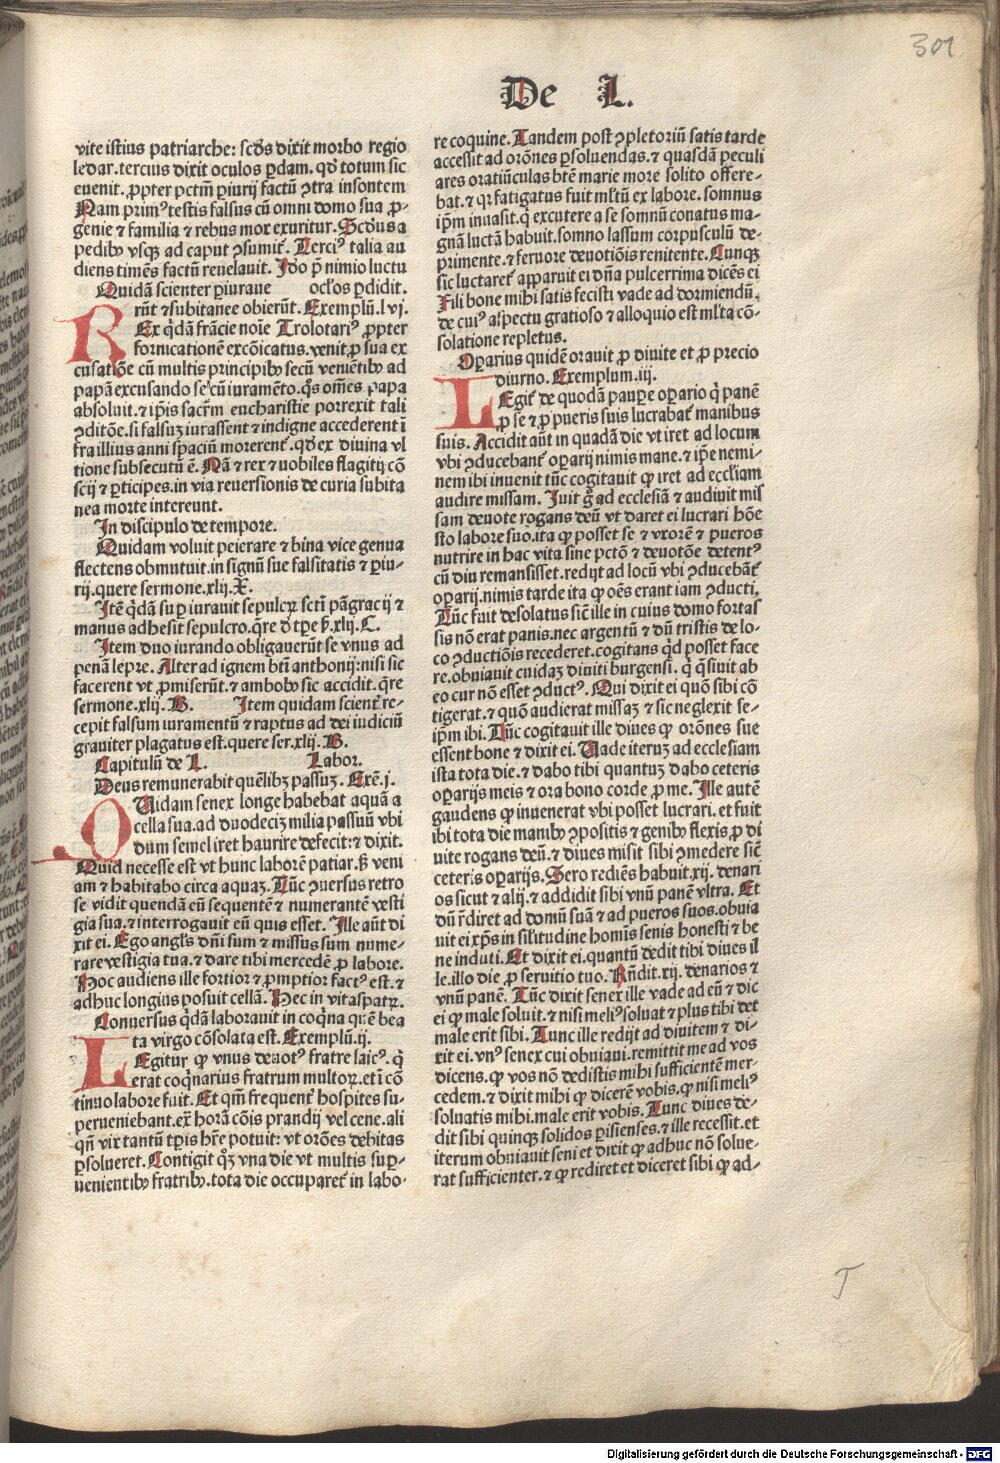 301
De L.
vite istius patriarche: scd̄s dixit morbo regio
ledar. tercius dixit oculos ꝑdam. qd̄ totum sic
euenit. ꝓpter pctm̄ ꝑiurij factū ꝯtra insontem
Nam primꝰ testis falsus cū omni domo sua ꝓ-
genie ⁊ familia ⁊ rebus mox exuritur. Scd̄us a
pedibꝰ vsqꝫ ad caput ꝯsumit̄. Terciꝰ talia au
diens timēs factū reuelauit. Ido p̄ nimio luctu
Quidā scienter ꝑiuraue ocl̓os ꝑdidit.
rūt ⁊ subitanee obierūt. Exemplū. lvj.
REx qdā frācie noīe Trolotariꝰ ꝓpter
fornicationē excōicatus. venit ꝓ sua ex
cusatiōe cū multis principibꝰ secū veniētibꝰ ad
papā excusando se cū iuramēto. qs om̄es papa
absoluit. ⁊ ip̄is sacrm̄ eucharistie porrexit tali
ꝯditōe. si falsuꝫ iurassent ⁊ indigne accederent ī
fra illius anni spaciū morerent̄. qd̄ ex diuina vl
tione subsecutū ē. Nā ⁊ rex ⁊ nobiles flagitij cō
scij ⁊ ꝑticipes. in via reuersionis de curia subita
nea morte intereunt.
In discipulo de tempore.
Quidam voluit peierare ⁊ bina vice genua
flectens obmutuit. in signū sue falsitatis ⁊ ꝑiu-
rij. quere sermone. xlij. X.
Itē qdā suꝑ iurauit sepulcꝝ scti pāgracij ⁊
manus adhesit sepulcro. qre d̄ tꝑe ẜ. xlij. C.
Item duo iurando obligauerūt se vnus ad
penā lepre. Alter ad ignem bt̄i anthonij: nisi sic
facerent vt ꝓmiserūt. ⁊ ambobꝰ sic accidit. qre
sermone. xlij. B. Item quidam scient̄ re-
cepit falsum iuramentū ⁊ raptus ad dei iudiciū
grauiter plagatus est. quere ser. xlij. B.
Capitulū de L. Labor.
Deus remunerabit quēlibꝫ passuꝫ. Exē. j.
QUidam senex longe habebat aquā a
cella sua. ad duodeciꝫ milia passuū vbi
dum semel iret haurire defecit: ⁊ dixit.
Quid necesse est vt hunc laborē patiar. ẜ veni
am ⁊ habitabo circa aquaꝫ. Tūc ꝯuersus retro
se vidit quendā eū sequentē ⁊ numerantē vesti
gia sua. ⁊ interrogauit eū quis esset. Ille aūt di
xit ei. Ego angl̓s dn̄i sum ⁊ missus sum nume-
rare vestigia tua. ⁊ dare tibi mercedē ꝓ labore.
Hoc audiens ille fortior ⁊ ꝓmptior factꝰ est. ⁊
adhuc longius posuit cellā. Hec in vitaspatꝝ.
Conuersus qdā laborauit in coqna quē bea
ta virgo cōsolata est. Exemplū. ij.
LEgitur ꝙ vnus deuotꝰ fratre laicꝰ. q̇
erat coqnarius fratrum multoꝝ. et ī cō
tinuo labore fuit. Et qm̄ frequent̄ hospites su-
perueniebant. ex̄ horā cōis prandij vel cene. ali
qn̄ vix tantū tꝑis hr̄e potuit: vt orōes debitas
ꝑsolueret. Contigit qꝫ vna die vt multis suꝑ-
uenientibꝰ fratribꝰ. tota die occuparet̄ in labo-
re coquine. Tandem post ꝯpletoriū satis tarde
accessit ad orōnes ꝑsoluendas. ⁊ quasdā peculi
ares oratiūculas btē marie more solito offere-
bat. ⁊ qꝛ fatigatus fuit ml̓tū ex labore. somnus
ip̄m inuasit. q excutere a se somnū conatus ma-
gnā luctā habuit. somno lassum corpusculū de-
primente. ⁊ feruore deuotiōis renitente. Cunqꝫ
sic luctaret̄ apparuit ei dn̄a pulcerrima dicēs ei
Fili bone mihi satis fecisti vade ad dormiendū,
de cuiꝰ aspectu gratioso ⁊ alloquio est ml̓ta cō-
solatione repletus.
Oꝑarius quidē orauit ꝓ diuite et ꝓ precio
diurno. Exemplum. iij.
LEgit̄ de quodā pauꝑe oꝑario q̇ panē
ꝓ se ⁊ ꝓ pueris suis lucrabat̄ manibus
suis. Accidit aūt in quadā die vt iret ad locum
vbi ꝯducebant̄ oꝑarij nimis mane. ⁊ ip̄e nemi-
nem ibi inuenit tūc cogitauit ꝙ iret ad eccl̓iam
audire missam. Iuit g̊ ad ecclesiā ⁊ audiuit mis
sam deuote rogans deū vt daret ei lucrari hōe
sto labore suo. ita ꝙ posset se ⁊ vxorē ⁊ pueros
nutrire in hac vita sine pctō ⁊ deuotōe detentꝰ
cū diu remansisset. redijt ad locū vbi ꝯducebāt̄
oꝑarij. nimis tarde ita ꝙ oēs erant iam ꝯducti.
Tūc fuit desolatus sicut̄ ille in cuius domo fortas
sis nō erat panis. nec argentū ⁊ dū tristis de lo-
co ꝯductiōis recederet. cogitans qd̓ posset face
re. obuiauit cuidaꝫ diuiti burgensi. q̇ q̄siuit ab
eo cur nō esset ꝯductꝰ. Qui dixit ei quō sibi cō
tigerat. ⁊ quō audierat missaꝫ ⁊ sic neglexit se-
ip̄m ibi. Tūc cogitauit ille diues ꝙ orōnes sue
essent bone ⁊ dixit ei. Vade iteruꝫ ad ecclesiam
ista tota die. ⁊ dabo tibi quantuꝫ dabo ceteris
oꝑarijs meis ⁊ ora bono corde ꝓ me. Ille autē
gaudens ꝙ inuenerat vbi posset lucrari. et fuit
ibi tota die manibꝰ ꝯpositis ⁊ genibꝰ flexis ꝓ di
uite rogans deū. ⁊ diues misit sibi ꝯmedere sic̄
ceteris oꝑarijs. Sero rediēs habuit. xij. denari
os sicut ⁊ alij. ⁊ addidit sibi vnū panē vltra. Et
dū rediret ad domū suā ⁊ ad pueros suos. obuia
uit ei xp̄s in sil̓itudine homīs senis honesti ⁊ be
ne induti. Et dixit ei. quantū dedit tibi diues il
le. illo die ꝓ seruitio tuo. Rn̄dit. xij. denarios ⁊
vnū panē. Tūc dixit senex ille vade ad eū ⁊ dic
ei ꝙ male soluit. ⁊ nisi meliꝰ soluat ⁊ plus tibi det
male erit sibi. Tunc ille redijt ad diuitem ⁊ di-
xit ei. vnꝰ senex cui obuiaui. remittit me ad vos
dicens. ꝙ vos nō dedistis mihi sufficientē mer-
cedem. ⁊ dixit mihi ꝙ dicerē vobis. ꝙ nisi meliꝰ
soluatis mihi. male erit vobis. Tunc diues de-
dit sibi quinqꝫ solidos ꝑisienses. ⁊ ille recessit. et
iterum obuiauit seni et dixit ꝙ adhuc nō solue-
rat sufficienter. ⁊ ꝙ rediret et diceret sibi ꝙ ad-
T
Digitalisierung gefördert durch die Deutsche Forschungsgemeinschaft - DFG